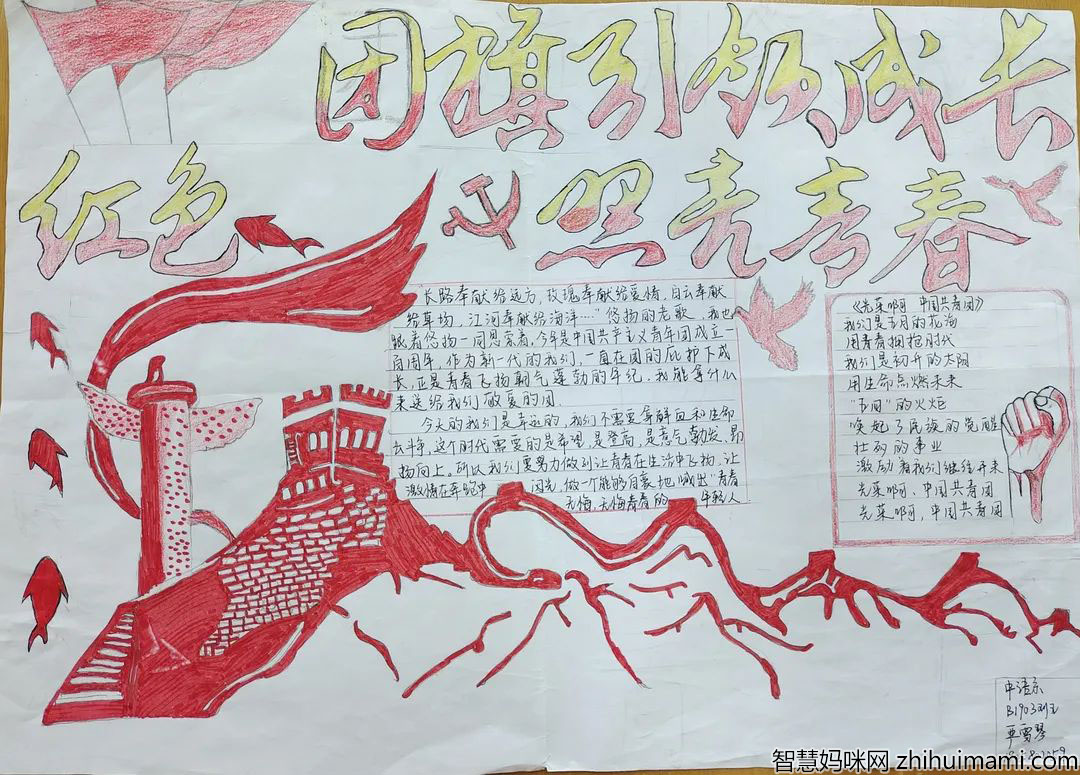 团旗引领成长
红色 照亮青春
"长路奉献给远方,玫瑰奉献给爱情,白云奉献
给草场,江河奉献给海洋……"悠扬的老歌,我也
跟着悠扬一同思索着,今年是中国共产主义青年团成立一
百周年,作为新一代的我们,一直在团的庇护下成
长,正是青春飞扬朝气蓬勃的年纪,我能拿什么
来送给我们敬爱的团.
今天的我们是幸运的,我们不需要拿鲜血和生命
去斗争,这个时代需要的是希望,是登高,是意气勃发,昂
扬向上。所以我们要努力做到让青春在生活中飞扬,让
激情在奔跑中 闪光,做一个能够自豪地喊出"青春
无悔,无悔青春的 年轻人
《光荣啊 中国共青团》
我们是五月的花海
用青春拥抱时代
我们是初升的太阳
用生命点燃未来
"五四"的火炬
唤起了民族的觉醒
壮烈的事业
激励着我们继往开来
光荣啊,中国共青团
光荣啊,中国共青团
B1903班
智慧妈咪网 zhihuimami.com